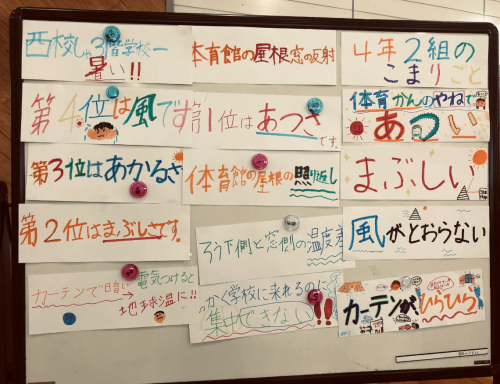 西校しゃ3階学校一
暑い!!
第4位は風です
第3位はあかるさ
第2位はまぶしさです。
カーテンで"暗い"→
電気つけると
地球温に!!
体育館の屋根窓の反射
第1位はあつさ
です。
体育館の屋根の照り返し
ろう下側と窓側の温度差
っかく学校に来れるのに
集中できない!!
4年2組の
こまりごと
体育かんのやねで
あつい
まぶしい
風がとおらない
カーテンがひらひら